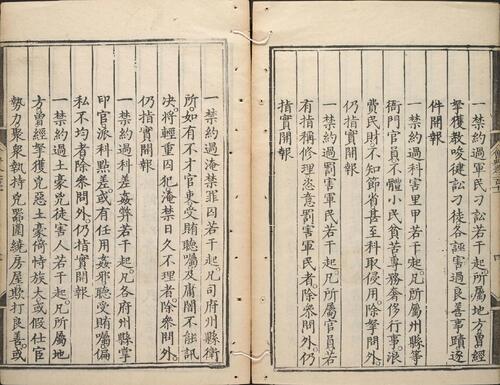 一禁約過軍民刁訟若干起。凡所屬地方曾經
拏獲教唆健訟刁徒各誣害過良善事蹟逐
件開報
一禁約過科害里甲若干起。凡所屬府州縣等
衙門官員不體小民貧苦專務奢侈行事。浪
費民財不知節省甚至科取侵用。除拏問外。
仍指實開報
一禁約過罰害軍民若干起。凡所屬官員若
有指稱修理恣意罰害軍民者。除叅問外。仍
指實開報
一禁約過淹禁罪囚若干起。凡司府州縣衛
所。如有不才官吏受賄聽囑及庸闇不能訊
决將輕重囚犯淹禁日久不理者。除叅問外。
仍指實開報
一禁約過科差姦弊若干起。凡各府州縣掌
印官派科㸃差或有任用姦邪聽受賄囑偏
私不均者除叅問外。仍指實開報
一禁約過土豪兇徒害人若干起。凡所屬地
方曾經拏獲兇惡土豪倚恃族大或假仕宦
勢力聚衆執持兇器圍繞房屋欺打良善。或